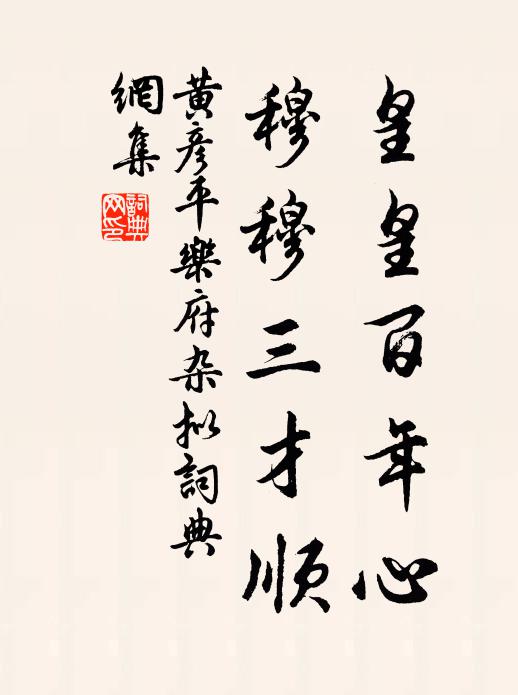 皇皇百年心
穆穆三才順
黃彥平樂府杂拟詞典
網集
詞典
网印